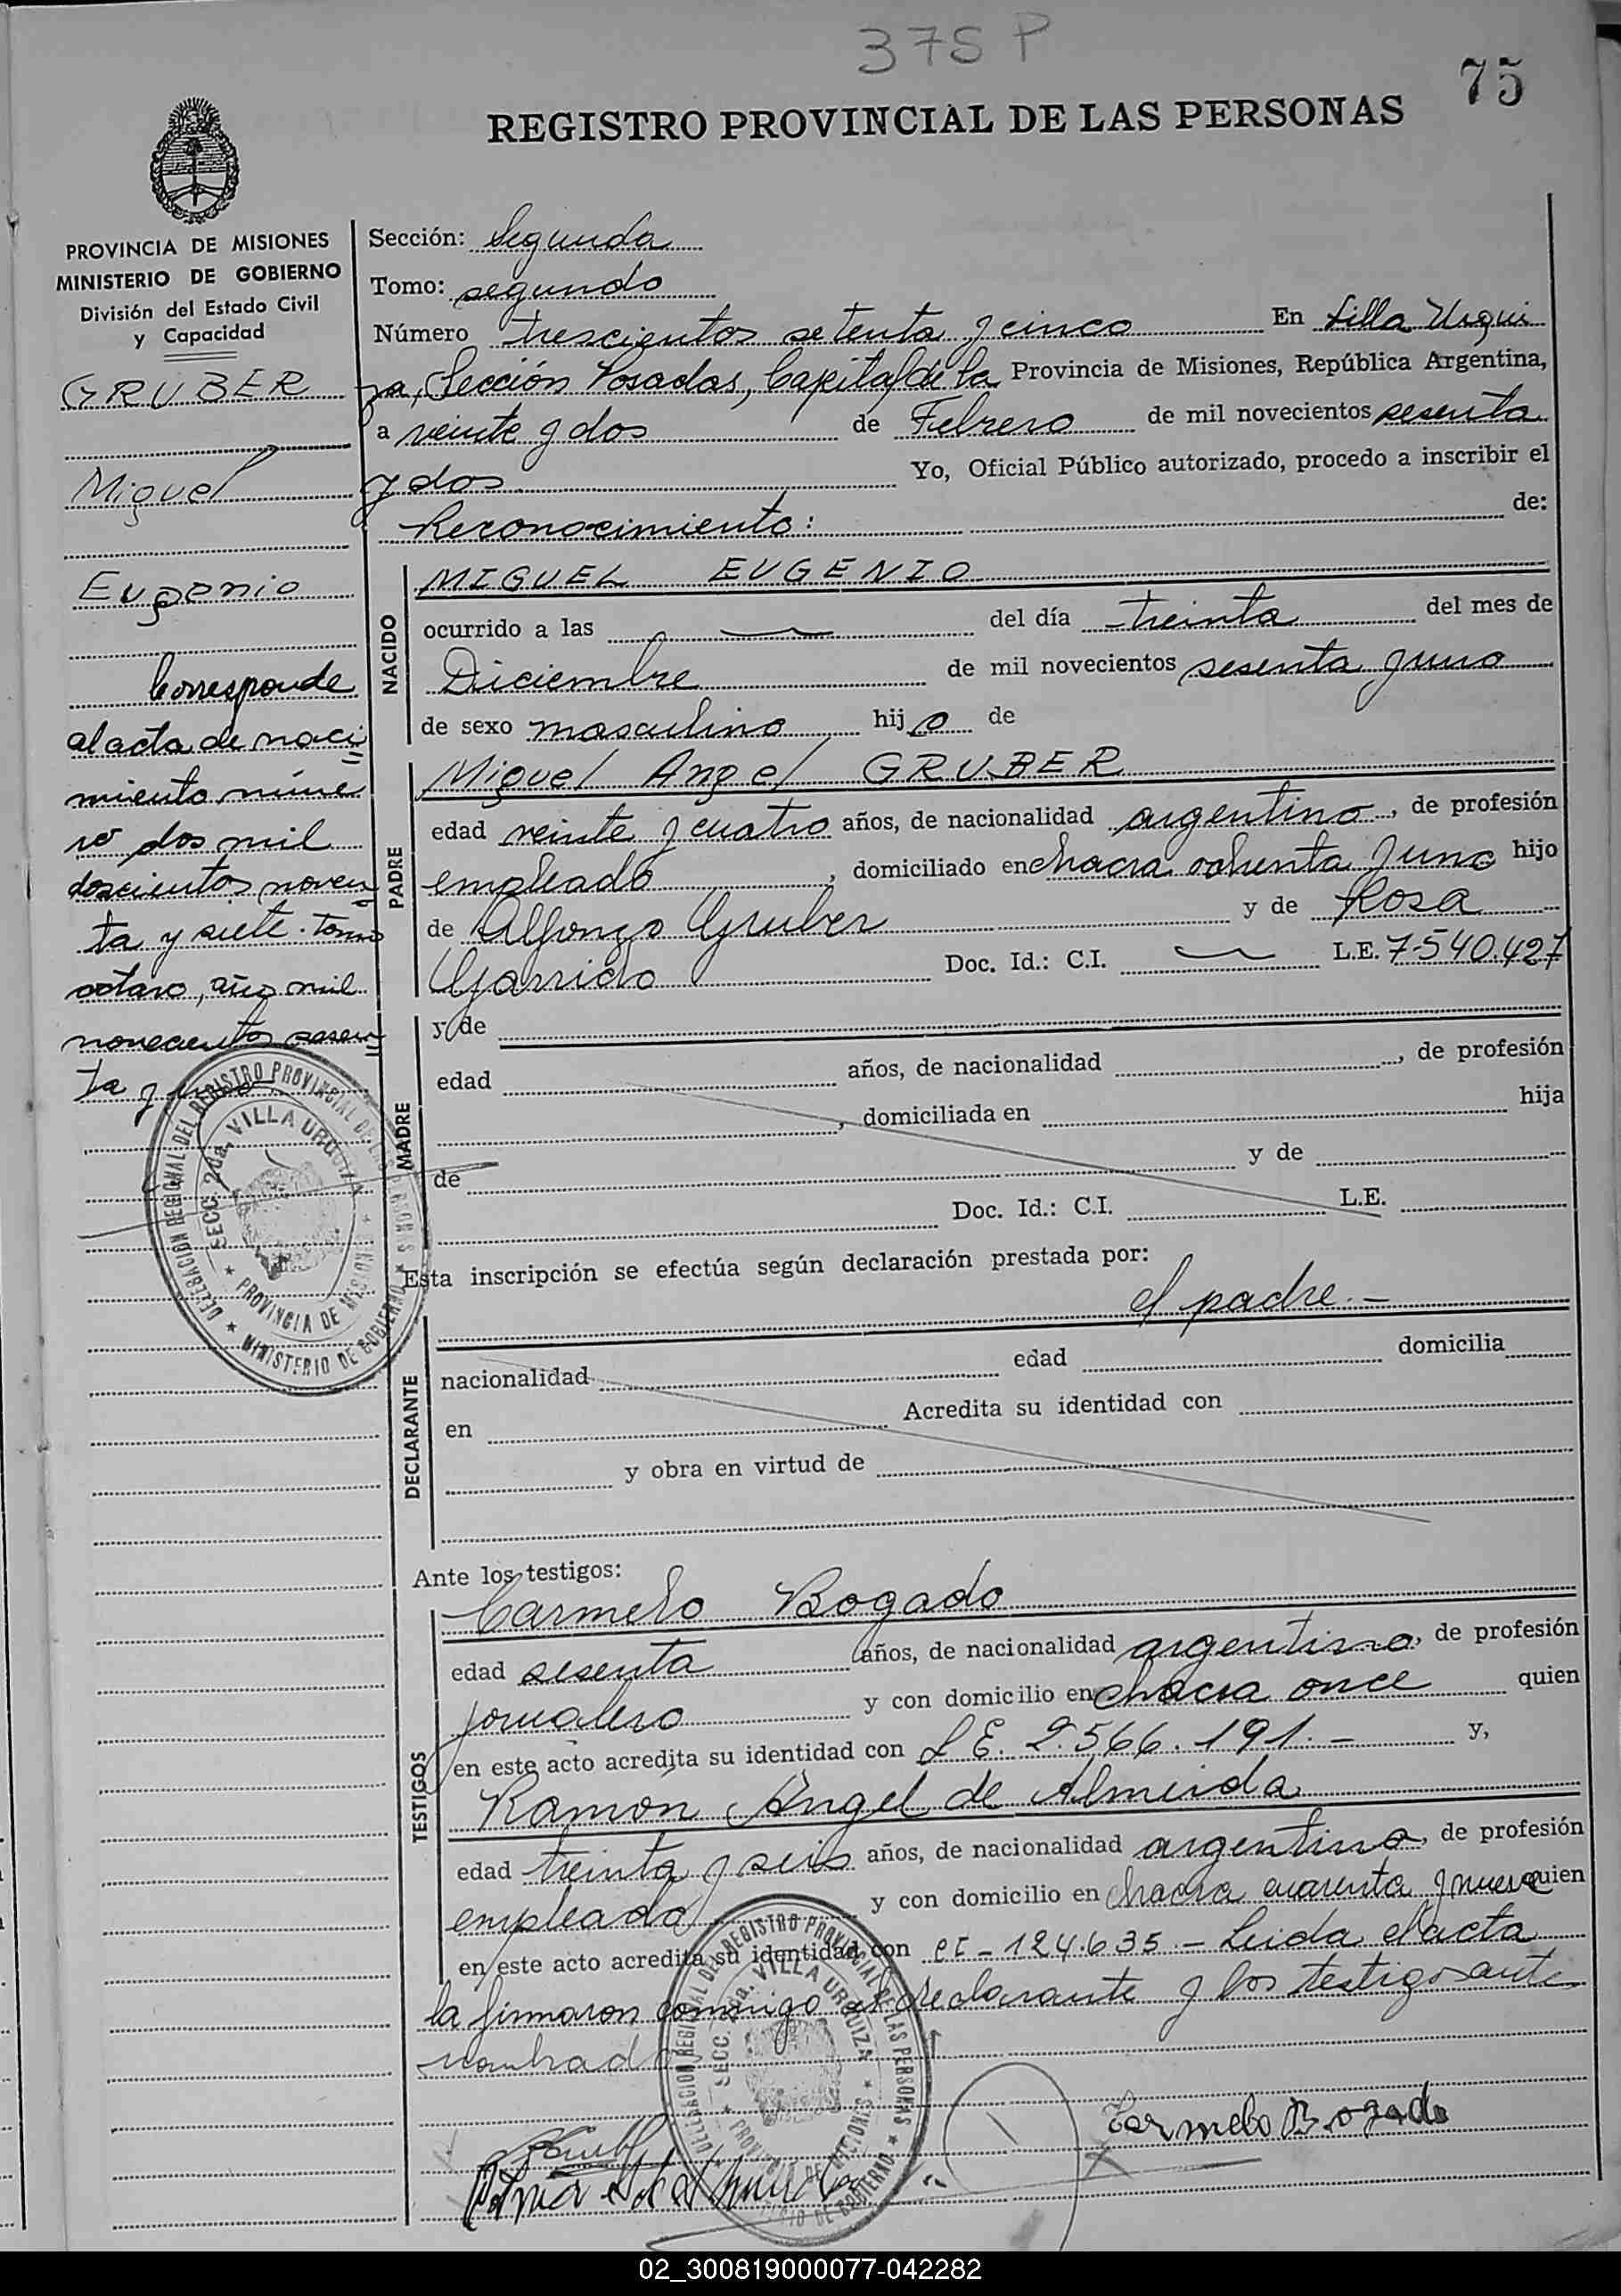 375 P
75
REGISTRO PROVINCIAL DE LAS PERSONAS
PROVINCIA DE MISIONES
MINISTERIO DE GOBIERNO
División del Estado Civil
y Capacidad
GRUBER
Miguel
Eugenio
Corresponde
al acta de naci
miento núme
ro dos mil
doscientos noven
ta y siete. Tomo
octavo, año mil
novecientos sesen
ta y uno
Sección: Segunda
Tomo: segundo
Número trescientos setenta y cinco En Villa Urqui
za, Sección Posadas, Capital de la Provincia de Misiones, República Argentina,
a veinte y dos de Febrero de mil novecientos sesenta
y dos Yo, Oficial Público autorizado, procedo a inscribir el
Reconocimiento: de:
NACIDO
MIGUEL EUGENIO
ocurrido a las del día treinta del mes de
Diciembre de mil novecientos sesenta y uno
de sexo masculino hijo de
PADRE
Miguel Angel GRUBER
edad veinte y cuatro años, de nacionalidad argentino, de profesión
empleado, domiciliado en chacra ochenta y uno hijo
de Alfonso Gruber y de Rosa
Garrido Doc. Id.: C.I. L.E. 7.540.427
MADRE
y de
edad años, de nacionalidad , de profesión
, domiciliada en hija
de y de
Doc. Id.: C.I. L.E.
Esta inscripción se efectúa según declaración prestada por:
el padre.-
DECLARANTE
nacionalidad edad domicilia
en Acredita su identidad con
y obra en virtud de
Ante los testigos:
TESTIGOS
Carmelo Bogado
edad sesenta años, de nacionalidad argentino, de profesión
jornalero y con domicilio en chacra once quien
en este acto acredita su identidad con L E. 2.566.191.- y,
Ramón Angel de Almeida
edad treinta y seis años, de nacionalidad argentino, de profesión
empleado y con domicilio en chacra cuarenta y nueve quien
en este acto acredita su identidad con CI - 124.635 - Leida el acta
la firmaron conmigo el declarante y los testigos ante
nombrados
Carmelo Bogado
DELEGACION REGIONAL DEL REGISTRO PROVINCIAL DE LAS PERSONAS
SECC. 2da. VILLA URQUIZA
PROVINCIA DE MISIONES
MINISTERIO DE GOBIERNO
DELEGACION REGIONAL DEL REGISTRO PROVINCIAL DE LAS PERSONAS
SECC. 2da. VILLA URQUIZA
PROVINCIA DE MISIONES
MINISTERIO DE GOBIERNO
02_300819000077-042282